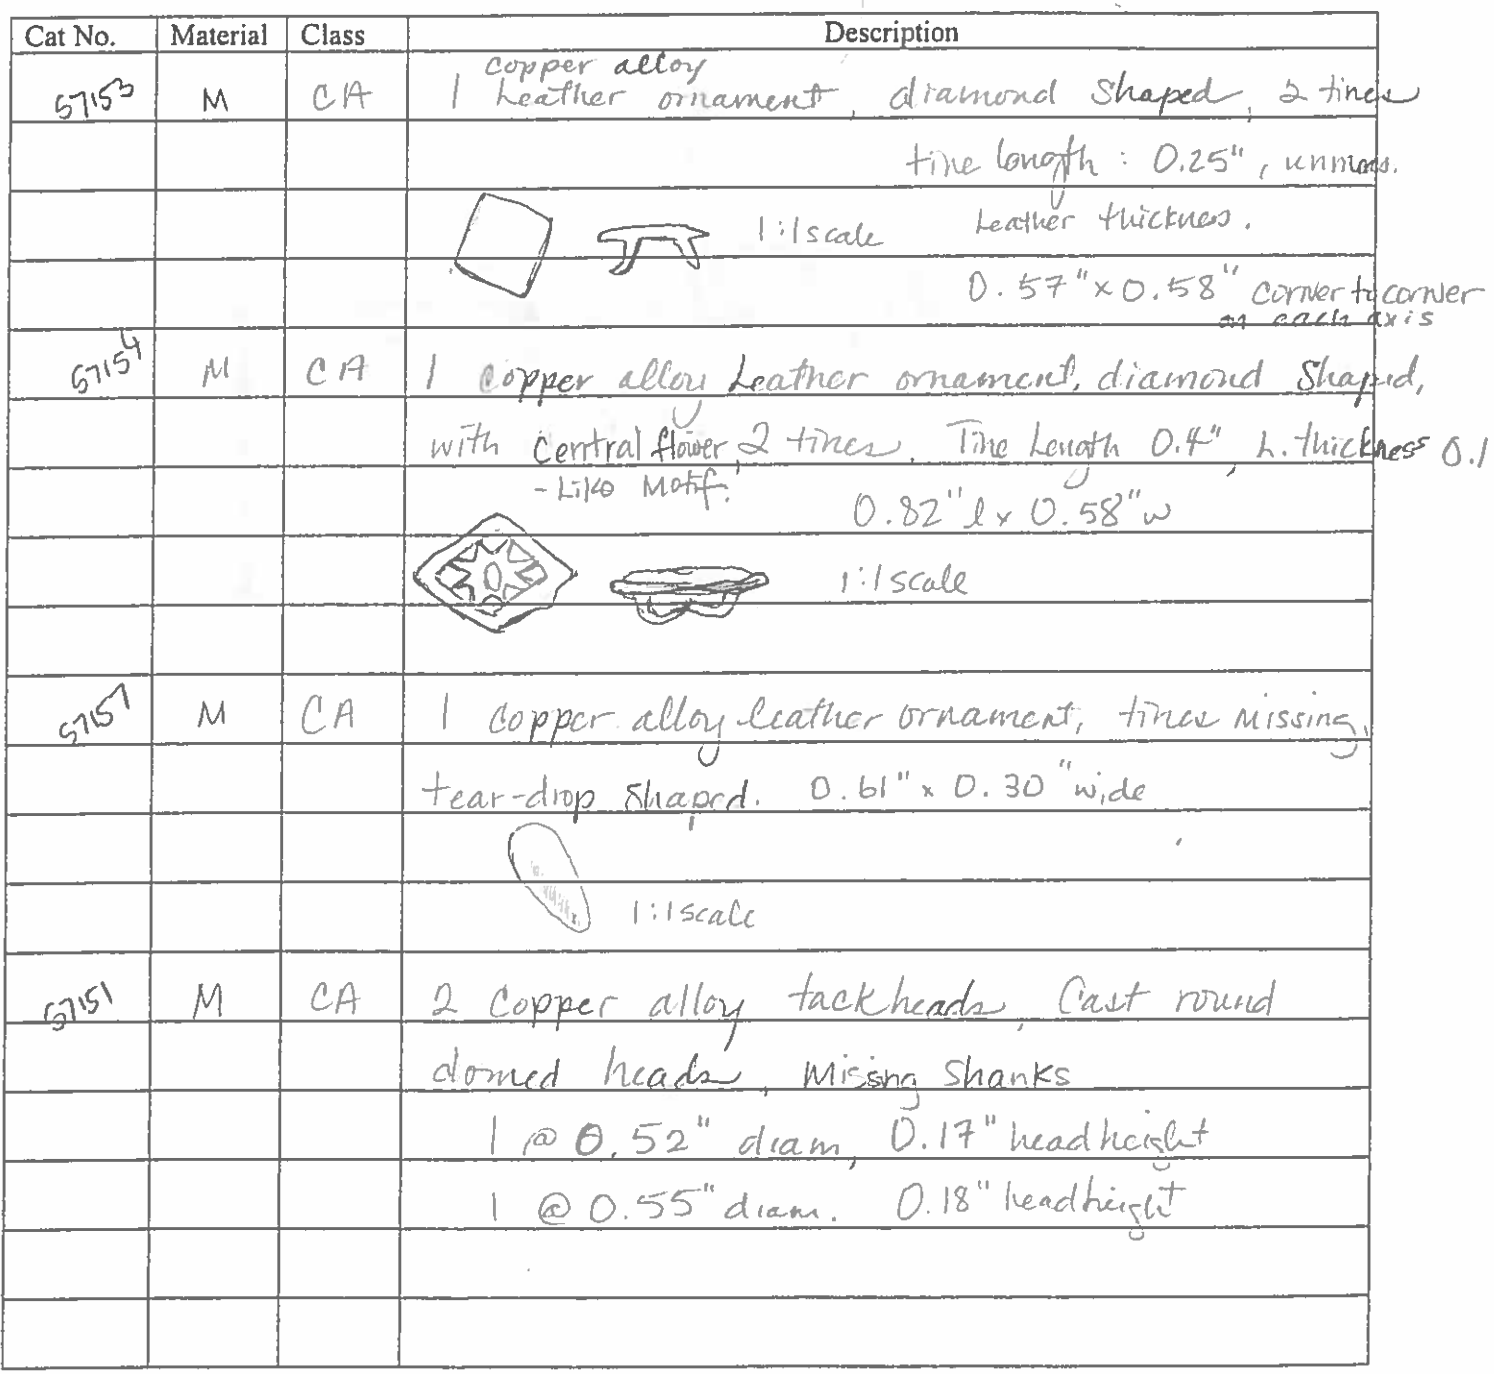 Cat No. Material Class Description
copper alloy
57153 M CA 1 Leather ornament, diamond shaped, 2 tines
tine length : 0.25", unmeas.
1:1 scale Leather thickness.
0.57" x 0.58" corner to corner
on each axis
57154 M CA 1 copper alloy Leather ornament, diamond shaped,
with central flower, 2 tines, Tine Length 0.4", L. thickness 0.1
-Like Motif. 0.82" l x 0.58" w
1:1 scale
57157 M CA 1 copper alloy leather ornament, tines missing,
tear-drop shaped. 0.61" x 0.30" wide
1:1 scale
57151 M CA 2 Copper alloy tackheads, Cast round
domed heads, Missing Shanks
1 @ 0.52" diam, 0.17" head height
1 @ 0.55" diam. 0.18" head height